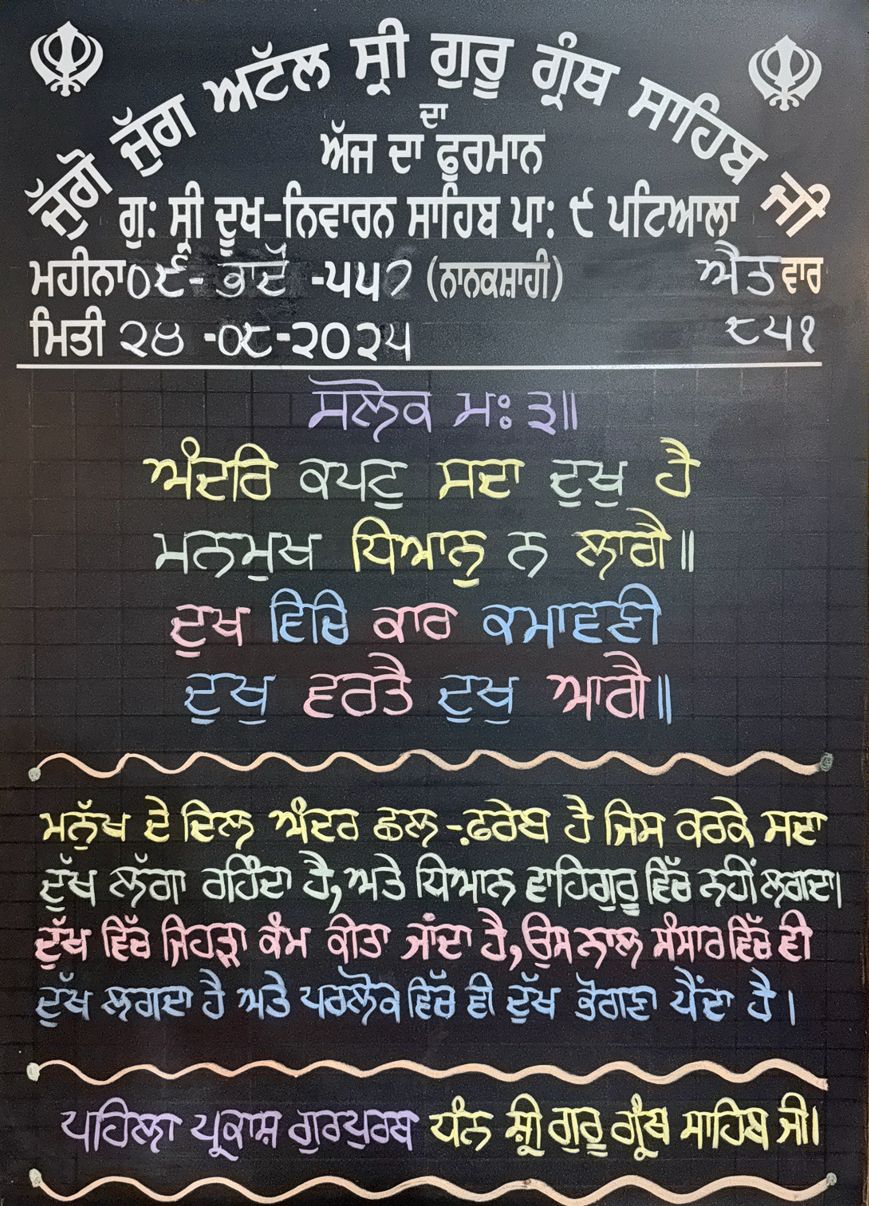 ਜੁੱਗੋ ਜੁੱਗ ਅਟੱਲ ਸ੍ਰੀ ਗੁਰੂ ਗ੍ਰੰਥ ਸਾਹਿਬ ਜੀ
ਦਾ
ਅੱਜ ਦਾ ਫੁਰਮਾਨ
ਗੁ: ਸ੍ਰੀ ਦੂਖ-ਨਿਵਾਰਨ ਸਾਹਿਬ ਪਾ: ੯ ਪਟਿਆਲਾ
ਮਹੀਨਾ ੦੯- ਭਾਦੋਂ -੫੫੭ (ਨਾਨਕਸ਼ਾਹੀ) ਐਤਵਾਰ
ਮਿਤੀ ੨੪ -੦੮-੨੦੨੫ ੮੫੧
ਸਲੋਕ ਮਃ ੩॥
ਅੰਦਰਿ ਕਪਟੁ ਸਦਾ ਦੁਖੁ ਹੈ
ਮਨਮੁਖ ਧਿਆਨੁ ਨ ਲਾਗੈ॥
ਦੁਖ ਵਿਚਿ ਕਾਰ ਕਮਾਵਣੀ
ਦੁਖੁ ਵਰਤੈ ਦੁਖੁ ਆਗੈ॥
ਮਨੁੱਖ ਦੇ ਦਿਲ ਅੰਦਰ ਛਲ-ਫ਼ਰੇਬ ਹੈ ਜਿਸ ਕਰਕੇ ਸਦਾ
ਦੁੱਖ ਲੱਗਾ ਰਹਿੰਦਾ ਹੈ, ਅਤੇ ਧਿਆਨ ਵਾਹਿਗੁਰੂ ਵਿੱਚ ਨਹੀਂ ਲਗਦਾ।
ਦੁੱਖ ਵਿੱਚ ਜਿਹੜਾ ਕੰਮ ਕੀਤਾ ਜਾਂਦਾ ਹੈ, ਉਸ ਨਾਲ ਸੰਸਾਰ ਵਿੱਚ ਵੀ
ਦੁੱਖ ਲਗਦਾ ਹੈ ਅਤੇ ਪਰਲੋਕ ਵਿੱਚ ਵੀ ਦੁੱਖ ਭੋਗਣਾ ਪੈਂਦਾ ਹੈ।
ਪਹਿਲਾ ਪ੍ਰਕਾਸ਼ ਗੁਰਪੁਰਬ ਧੰਨ ਸ਼੍ਰੀ ਗੁਰੂ ਗ੍ਰੰਥ ਸਾਹਿਬ ਜੀ।